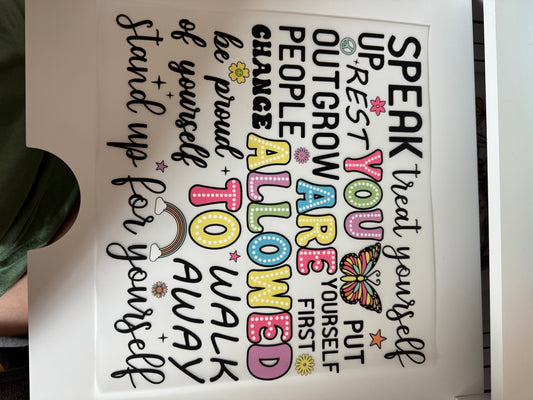 SPEAK treat yourself
UP REST YOU PUT
OUTGROW ARE YOURSELF
PEOPLE ALLOWED FIRST
CHANGE
be proud TO WALK
of yourself AWAY
stand up for yourself